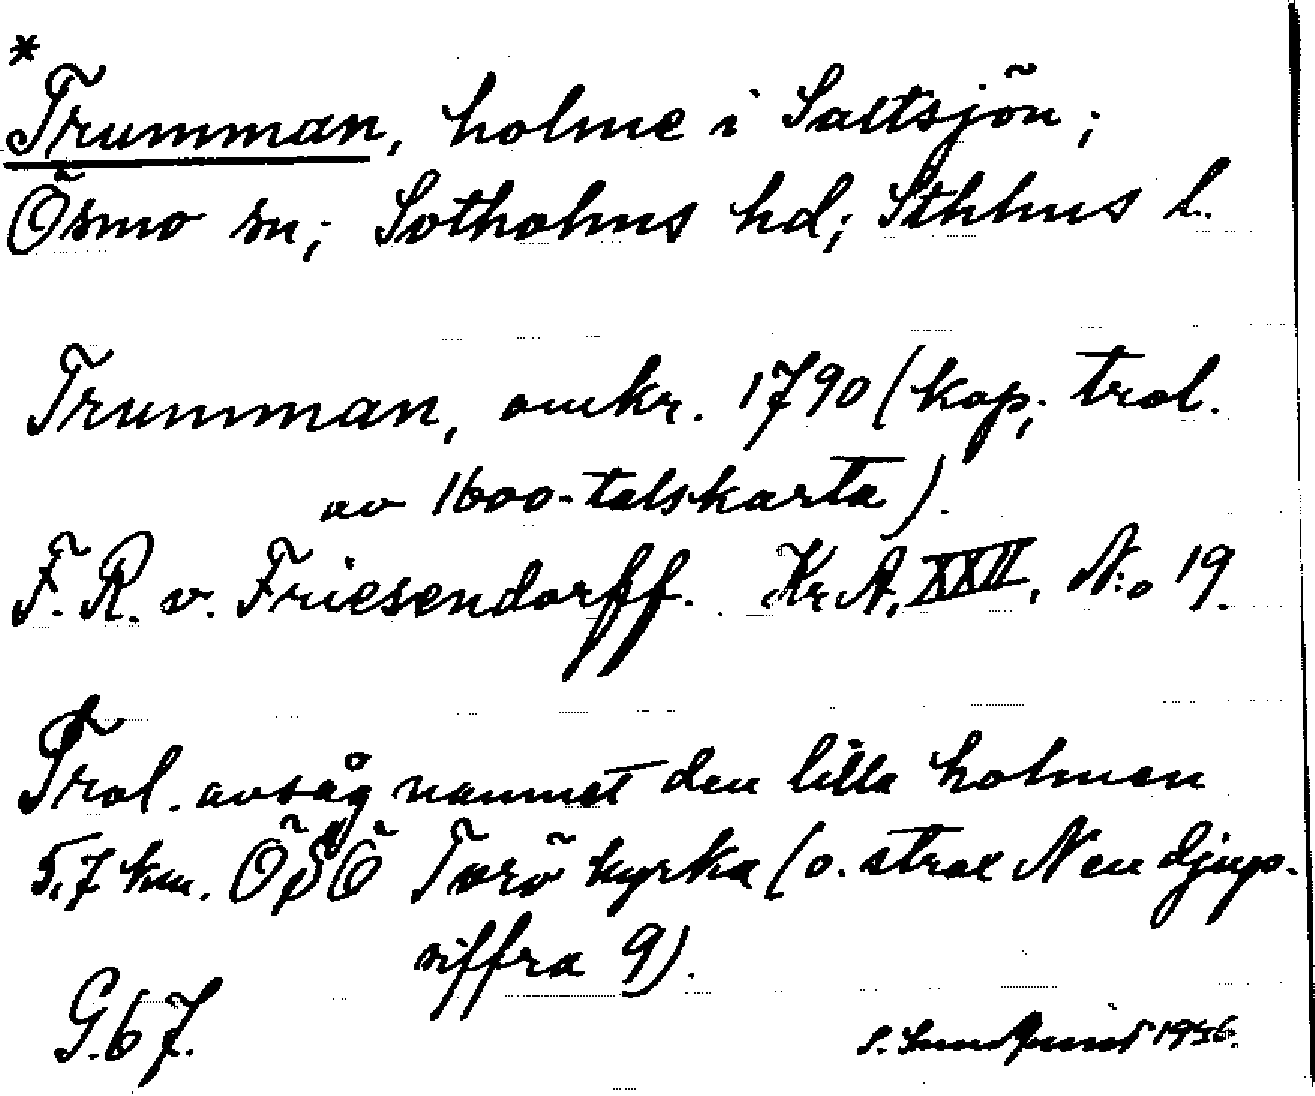 *
Trumman, holme i Saltsjön;
Ösmo sn; Sotholms hd; Sthlms l.
Trumman, omkr. 1790 (kop; trol.
av 1600-talskarta).
F. R. v. Friesendorff. Kr A, XXII, N:o 19.
Trol. avsåg namnet den lilla holmen
5,7 km. ÖSÖ Torö kyrka (o. strax N en djup-
siffra 9).
G. 67. S. Sundquist 1936.